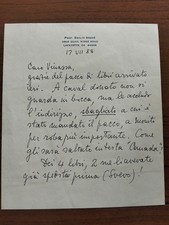 17 VII 88
Caro Vinassa,
grazie del pacco di libri arrivato
ieri. A caval donato non si
guarda in bocca, ma ho veduto
l'indirizzo, sbagliato a cui è
stato mandato il pacco, a monito
per roba più importante. Come
gli sarà saltato in testa "Annada"?
Dei 4 libri, 2 me li avevate
già spediti prima (Svevo)!